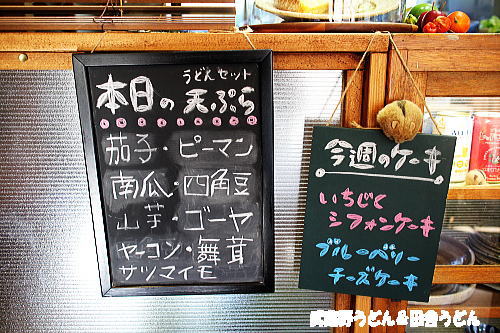 うどんセット
本日の天ぷら
茄子・ピーマン
南瓜・四角豆
山芋・ゴーヤ
ヤーコン・舞茸
サツマイモ
今週のケーキ
いちじく
シフォンケーキ
ブルーベリー
チーズケーキ
野うどん&田舎うどん